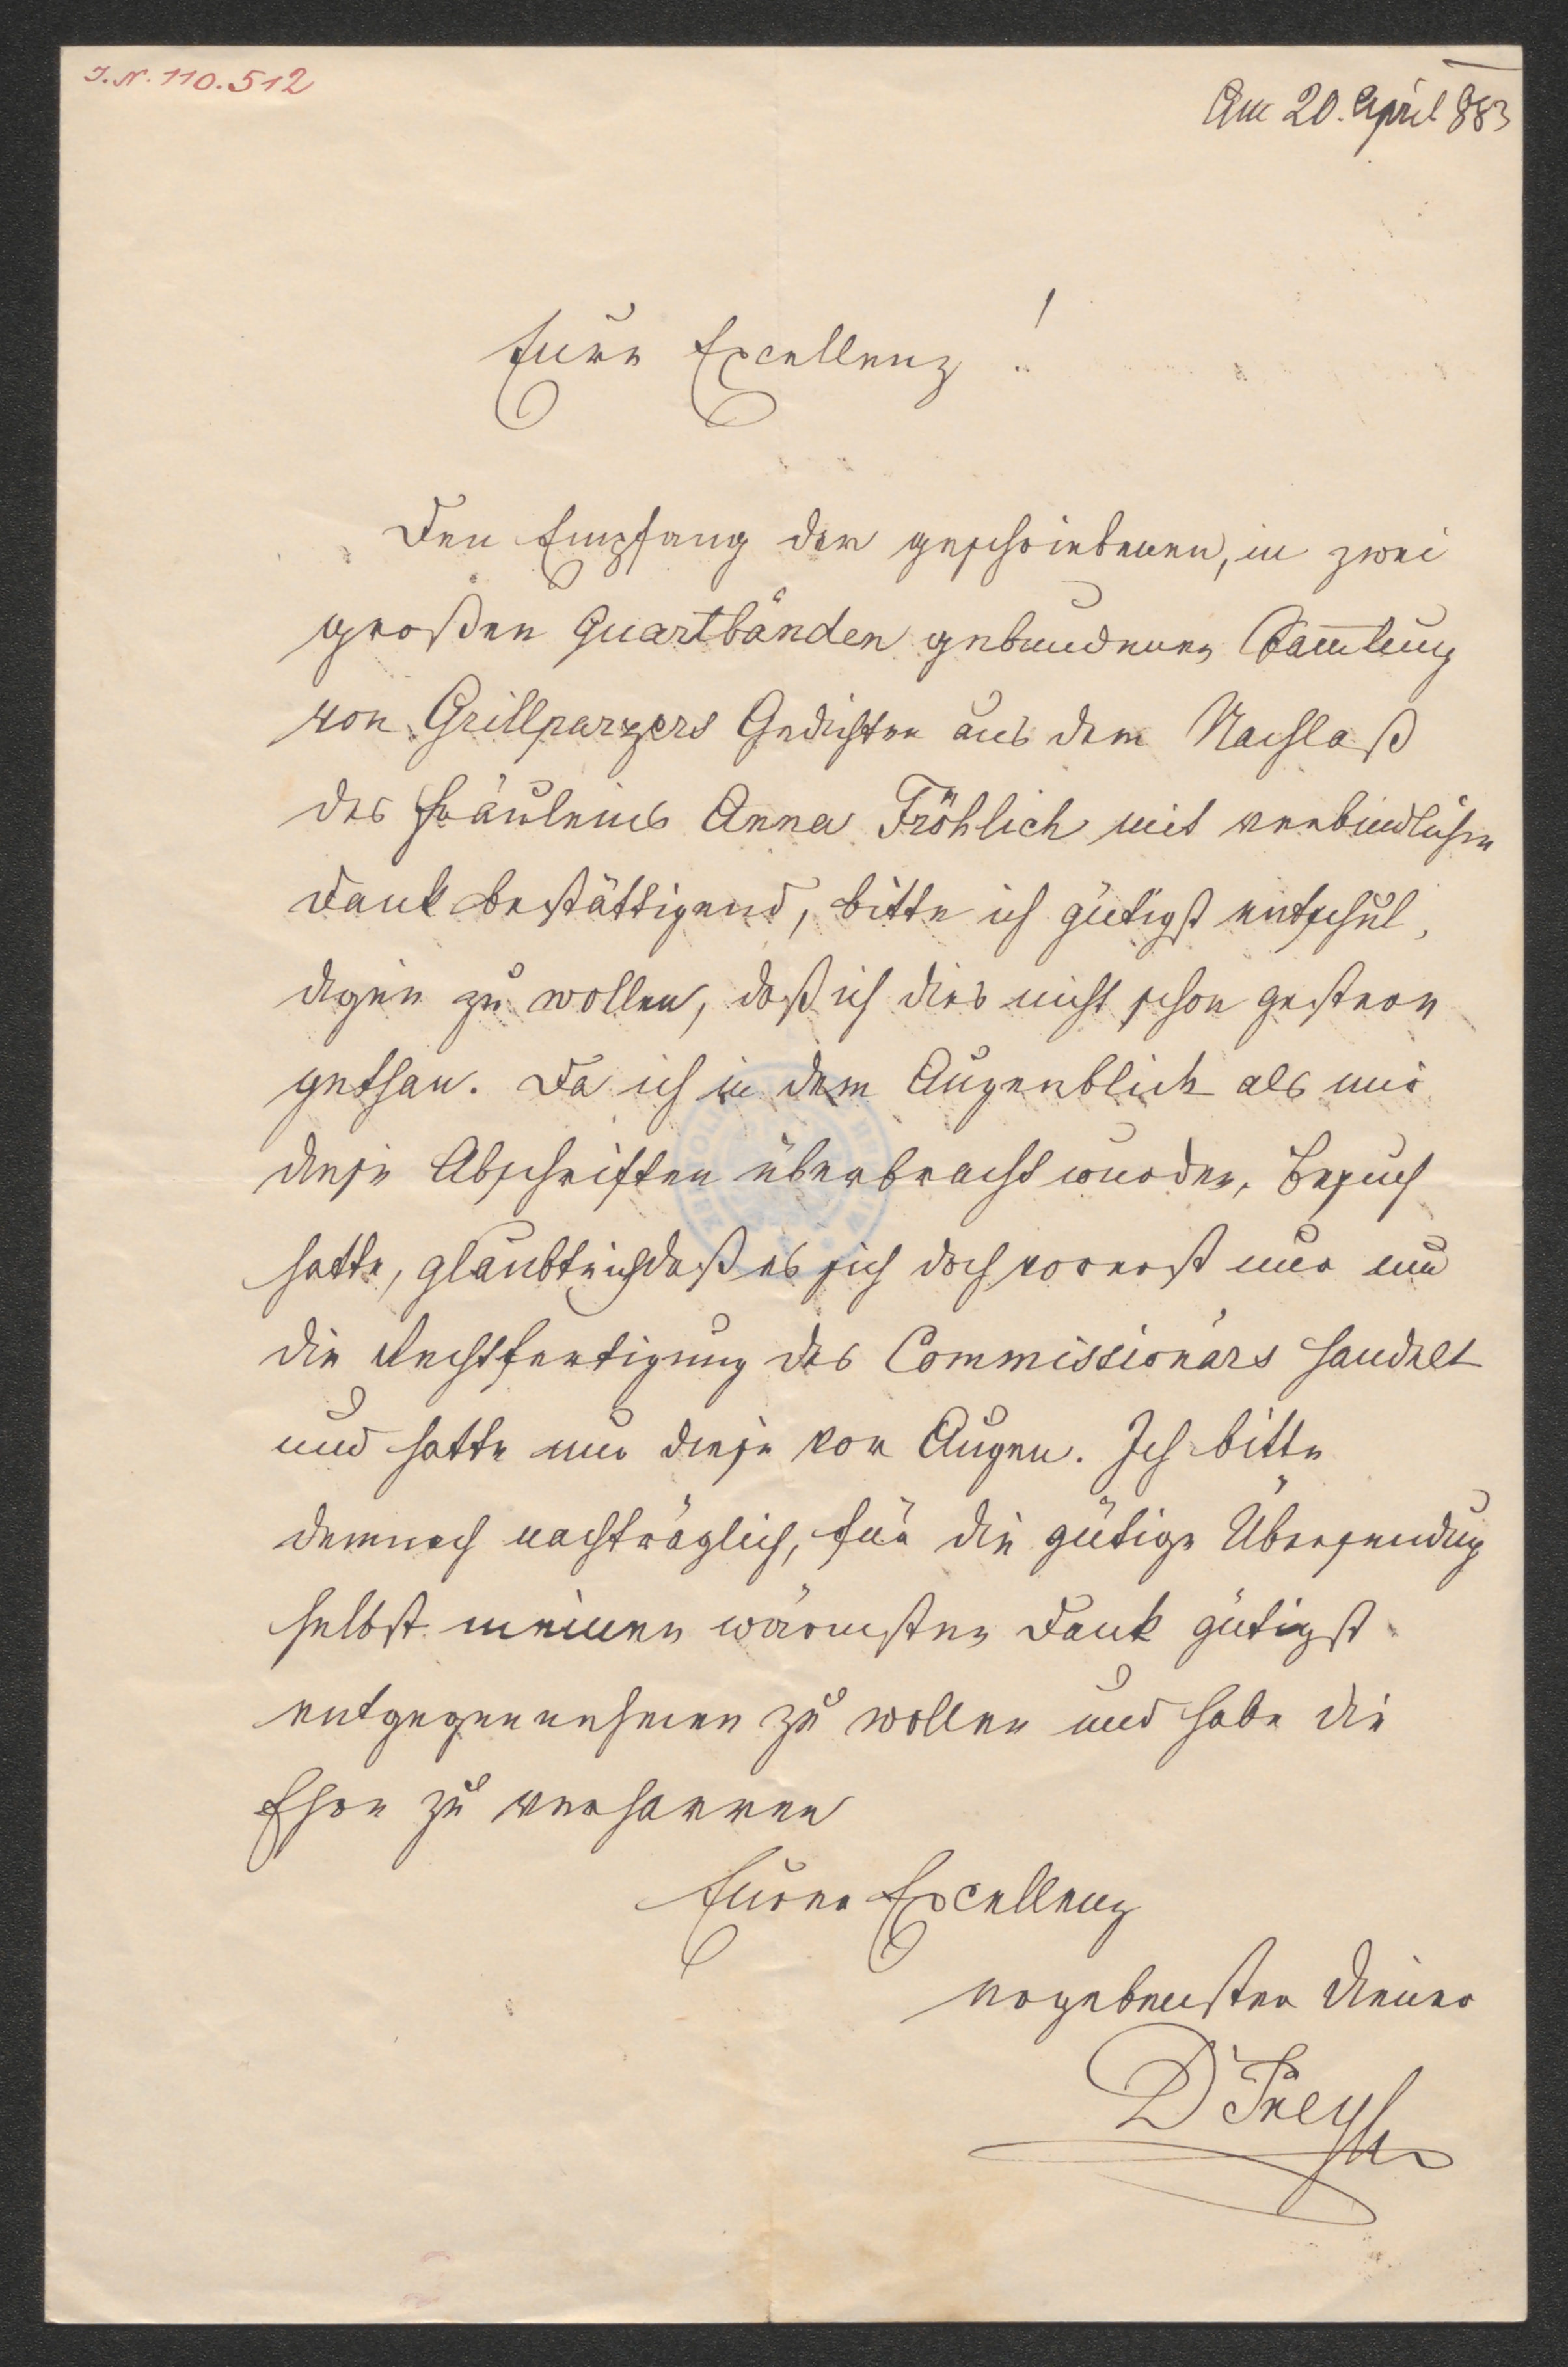 I.N. 110.512
Am 20. April 883
Eure Excellenz!
Den Empfang der geschriebenen, in zwei
großen Quartbänden gebundenen Sam̅lung
von Grillparzers Gedichten aus dem Nachlaß
des Fräuleins Anna Fröhlich mit verbindlichem
Dank bestättigend, bitte ich gütigst entschul,
digen zu wollen, daß ich dies nicht schon gestern
gethan. Da ich in dem Augenblick als mir
diese Abschriften überbracht wurden, Besuch
hatte, glaubte ich daß es sich doch vorerst nur um
die Rechtfertigung des Commissionärs handelt
und hatte nur diese vor Augen. Ich bitte
demnach nachträglich, für die gütige Übersendung
selbst meinen wärmsten Dank gütigst
entgegennehmen zu wollen und habe die
Ehre zu verharren
Eurer Excellenz
ergebenster Diener